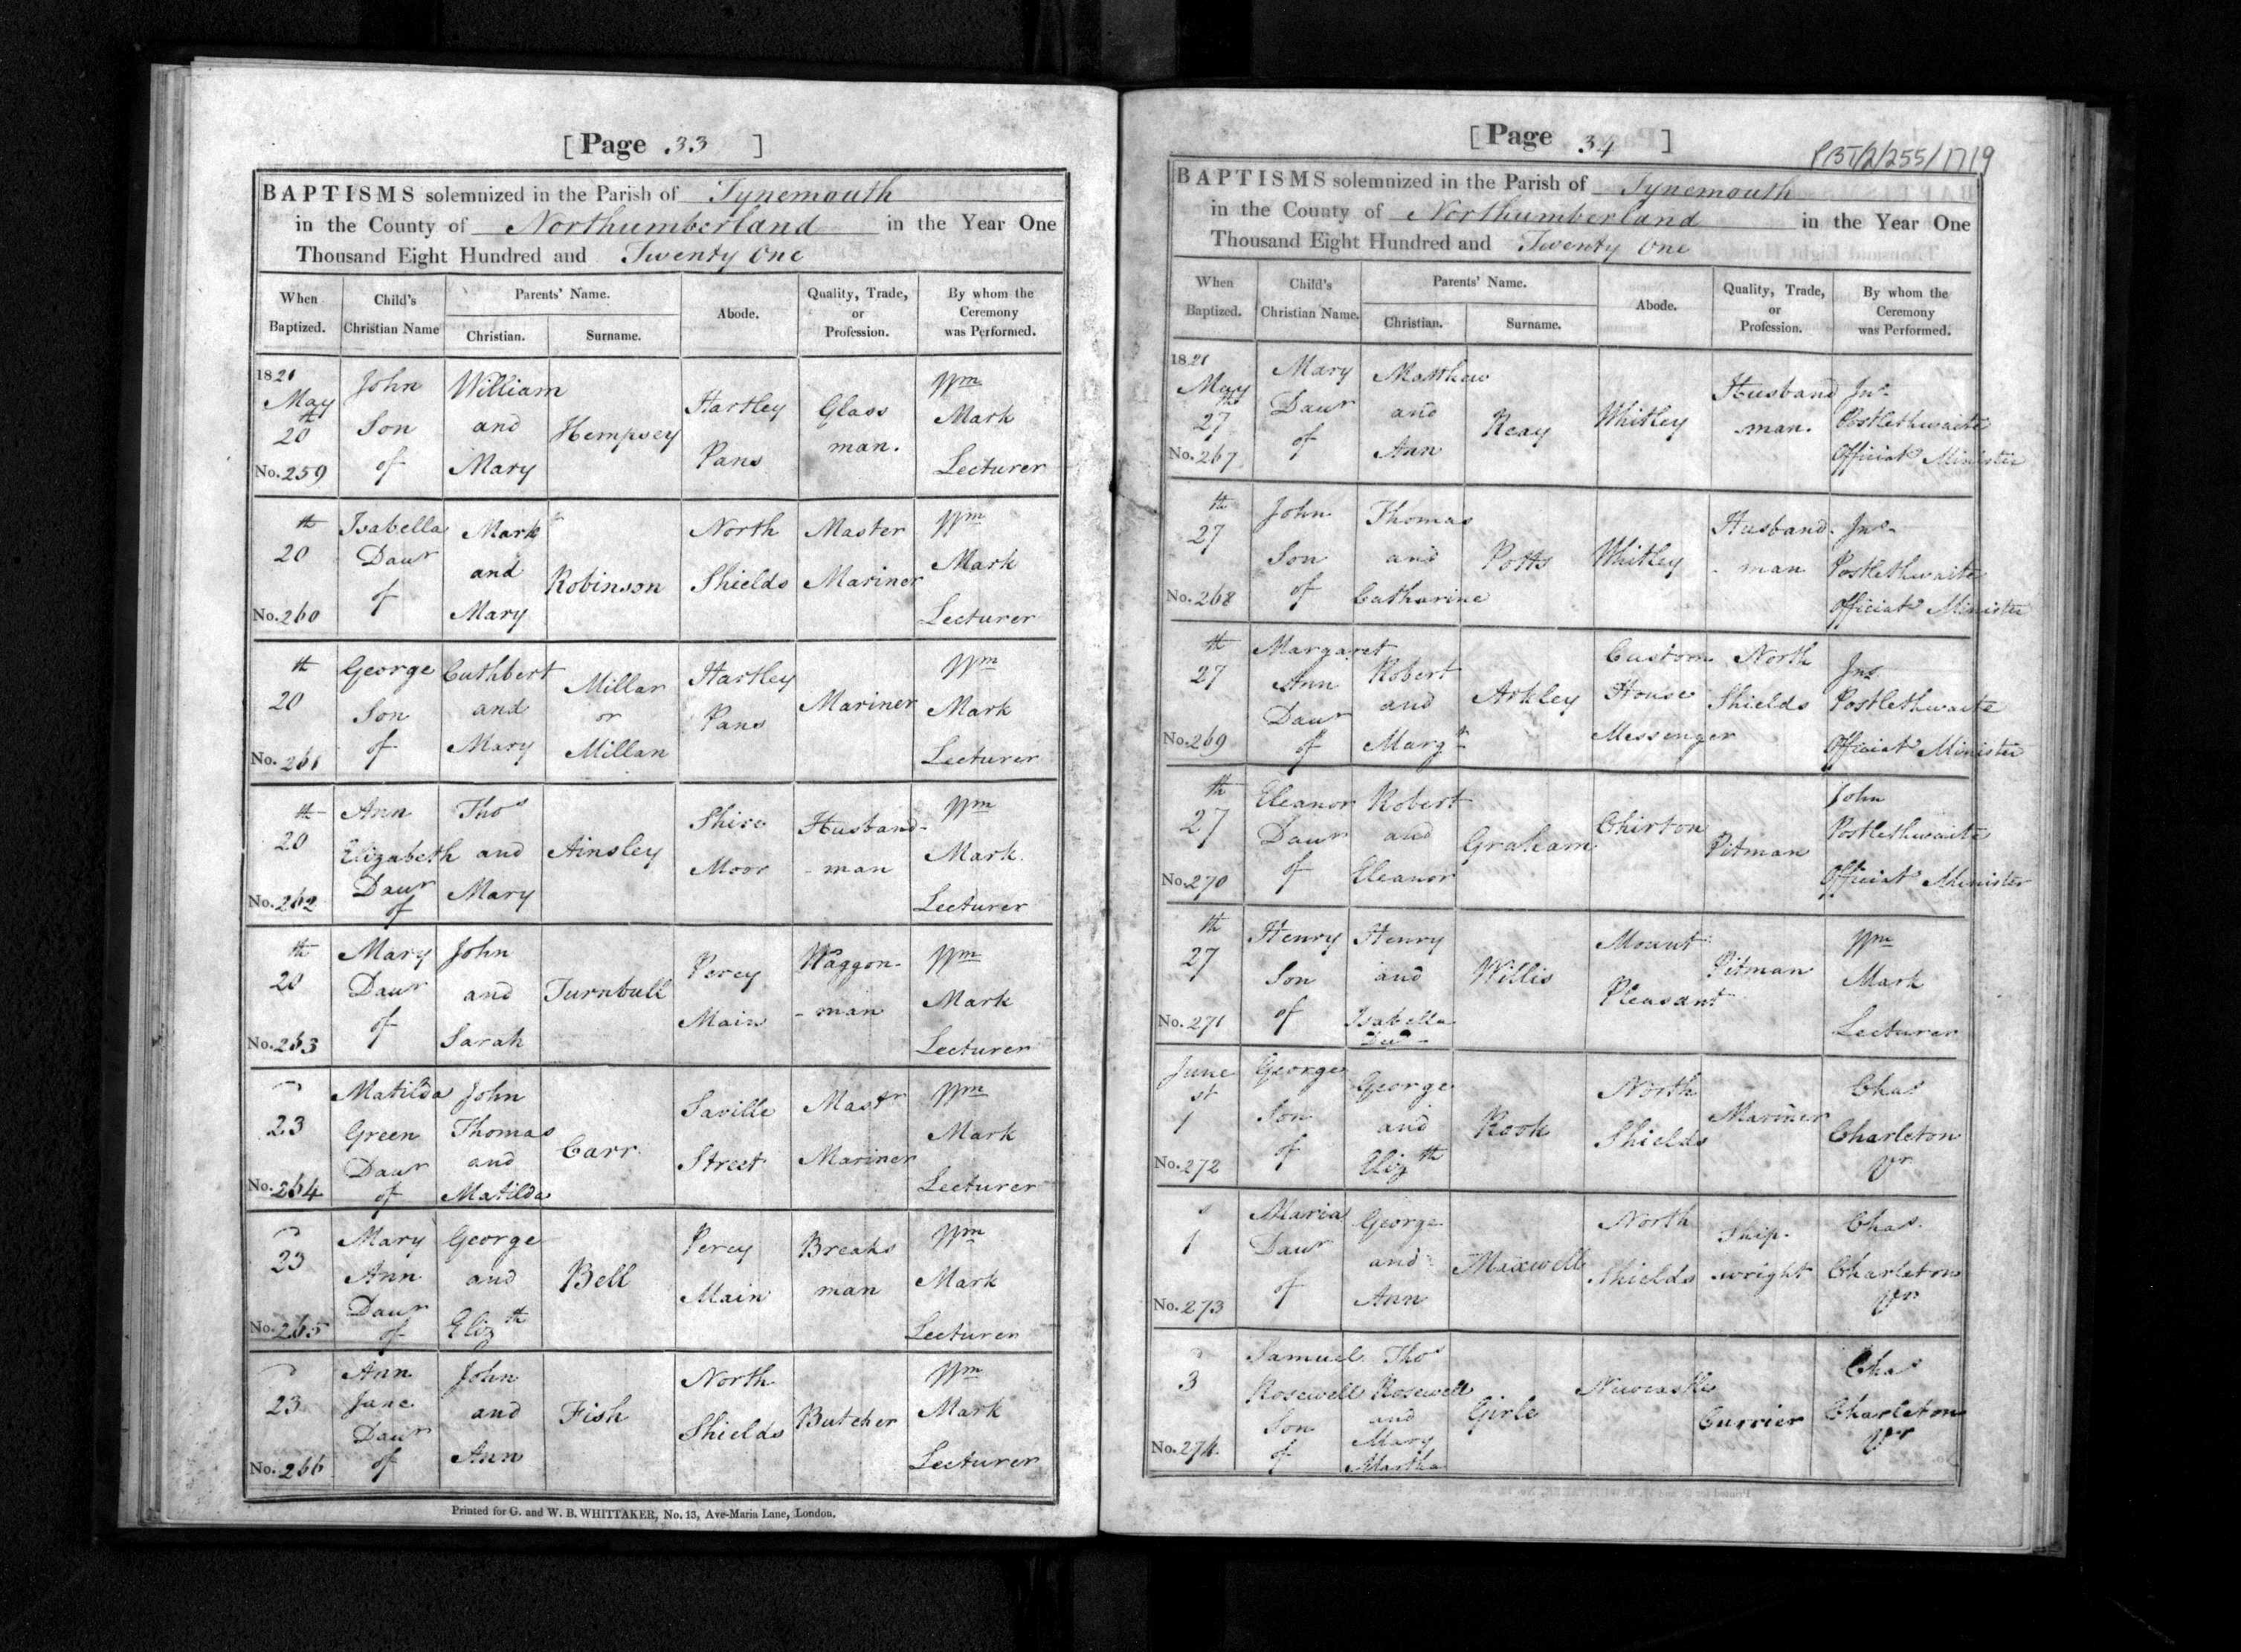 [ Page 33 ]
BAPTISMS solemnized in the Parish of Tynemouth
in the County of Northumberland in the Year One
Thousand Eight Hundred and Twenty One
When Baptized. Child's Christian Name Parents' Name. Christian. Surname. Abode. Quality, Trade, or Profession. By whom the Ceremony was Performed.
1821 May 20th No. 259 John Son of William and Mary Hempsey Hartley Pans Glass man. Wm Mark Lecturer
20th No. 260 Isabella Daur of Mark and Mary Robinson North Shields Master Mariner Wm Mark Lecturer
20th No. 261 George Son of Cuthbert and Mary Millar or Millan Hartley Pans Mariner Wm Mark Lecturer
20th No. 262 Ann Elizabeth Daur of Thos and Mary Ainsley Shire Moor Husband-man Wm Mark Lecturer
20th No. 263 Mary Daur of John and Sarah Turnbull Percy Main Waggon-man Wm Mark Lecturer
23 No. 264 Matilda Green Daur of John Thomas and Matilda Carr Saville Street Mastr Mariner Wm Mark Lecturer
23 No. 265 Mary Ann Daur of George and Elizth Bell Percy Main Breaks man Wm Mark Lecturer
23 No. 266 Ann Jane Daur of John and Ann Fish North Shields Butcher Wm Mark Lecturer
Printed for G. and W. B. WHITTAKER, No. 13, Ave-Maria Lane, London.
[ Page 34 ]
PBT/2/255/1719
BAPTISMS solemnized in the Parish of Tynemouth
in the County of Northumberland in the Year One
Thousand Eight Hundred and Twenty One
When Baptized. Child's Christian Name. Parents' Name. Christian. Surname. Abode. Quality, Trade, or Profession. By whom the Ceremony was Performed.
1821 May 27th No. 267 Mary Daur of Matthew and Ann Reay Whitley Husband man. Jno Postlethwaite Officiatg Minister
27th No. 268 John Son of Thomas and Catharine Potts Whitley Husband-man Jno Postlethwaite Officiatg Minister
27th No. 269 Margaret Ann Daur of Robert and Margt Arkley Custom House Messenger North Shields Jno Postlethwaite Officiatg Minister
27th No. 270 Eleanor Daur of Robert and Eleanor Graham Chirton Pitman John Postlethwaite Officiatg Minister
27th No. 271 Henry Son of Henry and Isabella Willis Mount Pleasant Pitman Wm Mark Lecturer
June 1st No. 272 George Son of George and Elizth Rook North Shields Mariner Chas Charleton Vr
1 No. 273 Maria Daur of George and Ann Maxwell North Shields Ship-wright Chas. Charleton Vr
3 No. 274. Samuel Rosewell Son of Thos Rosewell and Mary Martha Girle Newcastle Currier Chas Charleton Vr